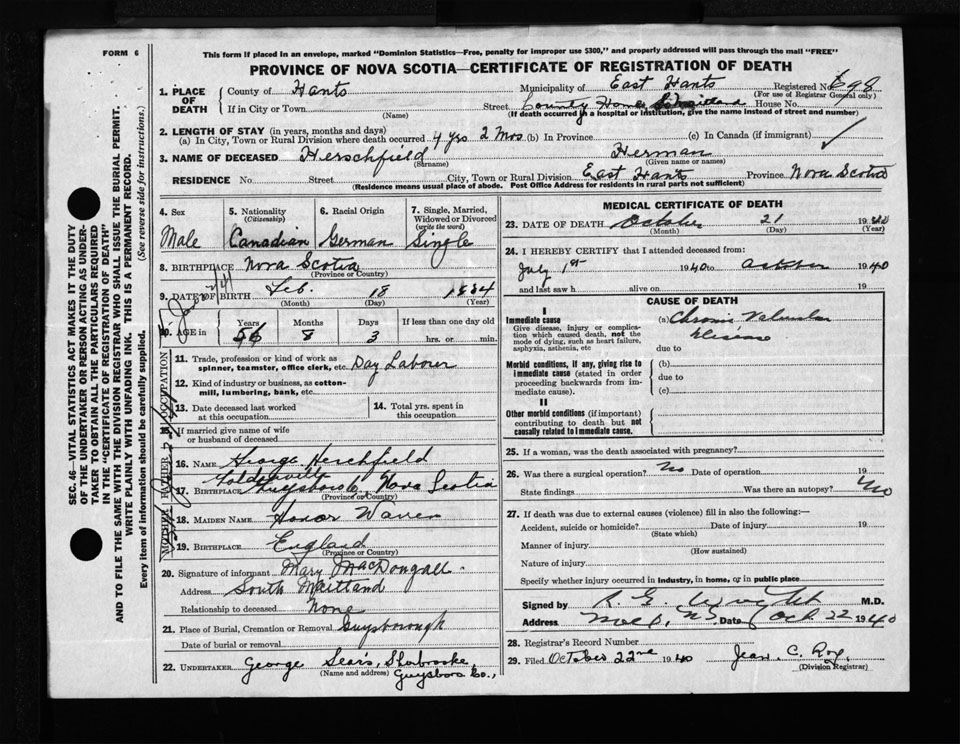 FORM 6
This form if placed in an envelope, marked "Dominion Statistics—Free, penalty for improper use $300," and properly addressed will pass through the mail "FREE"
PROVINCE OF NOVA SCOTIA—CERTIFICATE OF REGISTRATION OF DEATH
SEC. 46—VITAL STATISTICS ACT MAKES IT THE DUTY
OF THE UNDERTAKER OR PERSON ACTING AS UNDER-
TAKER TO OBTAIN ALL THE PARTICULARS REQUIRED
IN THE "CERTIFICATE OF REGISTRATION OF DEATH"
AND TO FILE THE SAME WITH THE DIVISION REGISTRAR WHO SHALL ISSUE THE BURIAL PERMIT.
WRITE PLAINLY WITH UNFADING INK. THIS IS A PERMANENT RECORD.
Every item of information should be carefully supplied. (See reverse side for instructions.)
1. PLACE OF DEATH
County of Hants Municipality of East Hants Registered No. 698
(For use of Registrar General only)
If in City or Town Street County Home S. Maitland House No.
(Name) (If death occurred in a hospital or institution, give the name instead of street and number)
2. LENGTH OF STAY (in years, months and days)
(a) In City, Town or Rural Division where death occurred 4 yrs 2 Mos. (b) In Province (c) In Canada (if immigrant)
3. NAME OF DECEASED Herschfield Herman
(Surname) (Given name or names)
RESIDENCE No. Street City, Town or Rural Division East Hants Province Nova Scotia
(Residence means usual place of abode. Post Office Address for residents in rural parts not sufficient)
4. Sex 5. Nationality (Citizenship) 6. Racial Origin 7. Single, Married, Widowed or Divorced (write the word)
Male Canadian German Single
8. BIRTHPLACE Nova Scotia
(Province or Country)
9. DATE OF BIRTH Feb. 18 1884
(Month) (Day) (Year)
10. AGE in Years Months Days If less than one day old
56 8 3 hrs. or min.
OCCUPATION
11. Trade, profession or kind of work as spinner, teamster, office clerk, etc. Day Labourer
12. Kind of industry or business, as cotton-mill, lumbering, bank, etc.
13. Date deceased last worked at this occupation
14. Total yrs. spent in this occupation
15. If married give name of wife or husband of deceased
FATHER
16. NAME George Herchfield
17. BIRTHPLACE Goldenville Guysboro Co, Nova Scotia
(Province or Country)
MOTHER
18. MAIDEN NAME Honor Warren
19. BIRTHPLACE England
(Province or Country)
20. Signature of informant Mary MacDougall
Address South Maitland
Relationship to deceased None
21. Place of Burial, Cremation or Removal Guysborough
Date of burial or removal
22. UNDERTAKER George Sears, Sherbrooke,
(Name and address) Guysboro Co.,
MEDICAL CERTIFICATE OF DEATH
23. DATE OF DEATH October 21 1940
(Month) (Day) (Year)
24. I HEREBY CERTIFY that I attended deceased from:
July 1st 1940 to October 1940
and last saw h alive on 19
CAUSE OF DEATH
I
Immediate cause
Give disease, injury or complication which caused death, not the mode of dying, such as heart failure, asphyxia, asthenia, etc
(a) Chronic Valvular
Disease
due to
Morbid conditions, if any, giving rise to immediate cause (stated in order proceeding backwards from immediate cause).
(b)
due to
(c)
II
Other morbid conditions (if important) contributing to death but not causally related to immediate cause.
25. If a woman, was the death associated with pregnancy?
26. Was there a surgical operation? No Date of operation 19
State findings Was there an autopsy? No
27. If death was due to external causes (violence) fill in also the following:—
Accident, suicide or homicide? Date of injury 19
(State which)
Manner of injury
(How sustained)
Nature of injury
Specify whether injury occurred in industry, in home, or in public place
Signed by M.D.
Address N.S. Date Oct 22 1940
28. Registrar's Record Number
29. Filed October 22nd 1940 Jean C. Roy.
(Division Registrar)